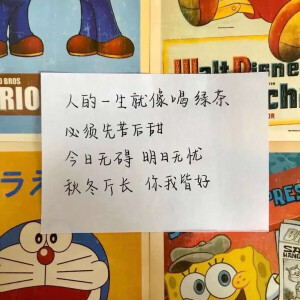 Walt Disney
BROS
RIO
人的一生就像喝绿茶
必须先苦后甜
今日无碍 明日无忧
秋冬斤长 你我皆好
ラえ